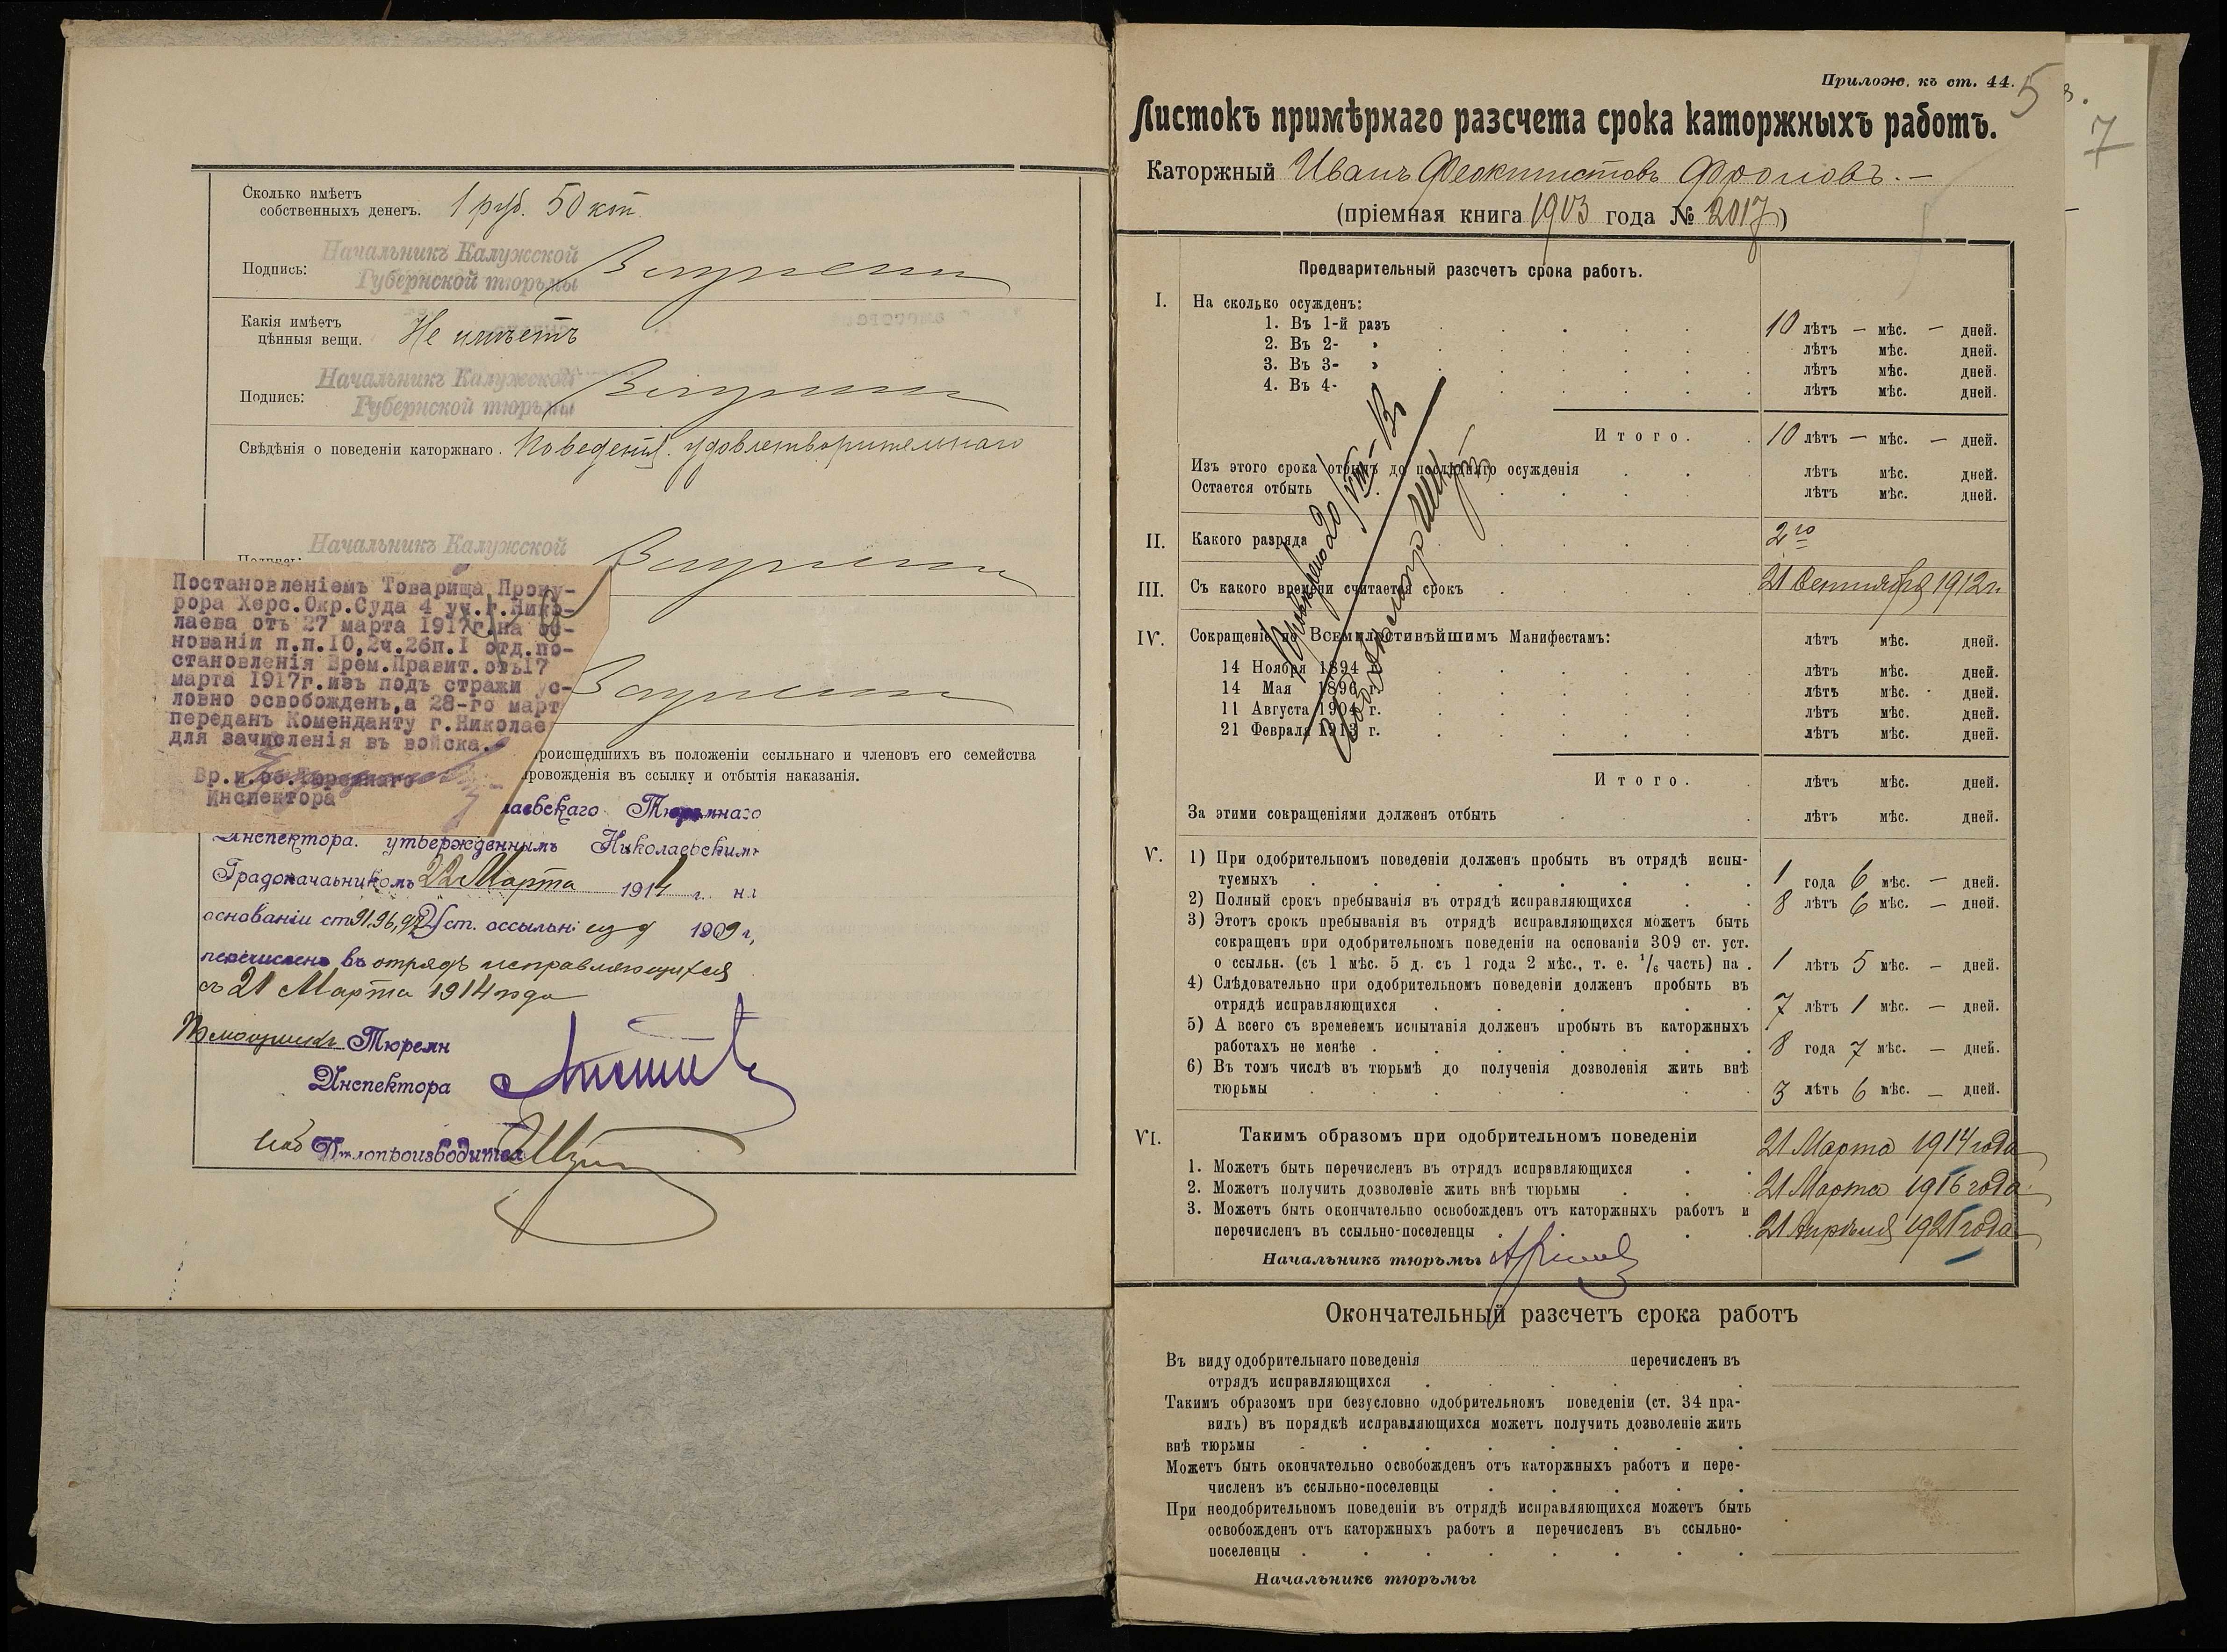 Сколько имѣетъ
собственныхъ денегъ. 1 руб. 50 коп.
Начальникъ Калужской
Подпись:
Губернской тюрьмы
Какія имѣетъ
цѣнныя вещи. Не имѣетъ
Начальникъ Калужской
Подпись:
Губернской тюрьмы
Свѣдѣнія о поведеніи каторжнаго. Поведенія удовлетворительнаго
Начальникъ Калужской
Постановленіемъ Товарища Проку-
рора Херс.Окр.Суда 4 уч.г.Нико-
лаева отъ 27 марта 1917г.на ос-
нованіи п.п.10,2ч.26п.I отд.по-
становленія Врем.Правит.отъ17
марта 1917г.изъ подъ стражи ус-
ловно освобожденъ,а 28-го март
переданъ Коменданту г.Николае
для зачисленія въ войска.
Вр.и.об.Тюремнаго
Инспектора
происшедшихъ въ положеніи ссыльнаго и членовъ его семейства
провожденія въ ссылку и отбытія наказанія.
лаевскаго Тюремнаго
Инспектора. утвержденнымъ Николаевскимъ
Градоначальникомъ 22 Марта 1914 г. на
основаніи ст. 91, 96, Уст. ссыльн. изд 1909 г.
перечисленъ въ отрядъ исправляющихся
съ 21 Марта 1914 года
Помощникъ Тюремн
Инспектора
Иоб Дѣлопроизводителя
Прилож. къ ст. 44.
5
7
Листокъ примѣрнаго разсчета срока каторжныхъ работъ.
Каторжный Иванъ Феоктистовъ Фроловъ. —
(пріемная книга 1903 года № 2017)
Предварительный разсчетъ срока работъ.
I. На сколько осужденъ:
1. Въ 1-й разъ 10 лѣтъ — мѣс. — дней.
2. Въ 2- » лѣтъ мѣс. дней.
3. Въ 3- » лѣтъ мѣс. дней.
4. Въ 4- лѣтъ мѣс. дней.
Итого. 10 лѣтъ — мѣс. — дней.
Изъ этого срока отбылъ до послѣдняго осужденія лѣтъ мѣс. дней.
Остается отбыть лѣтъ мѣс. дней.
II. Какого разряда 2го
III. Съ какого времени считается срокъ 21 Сентября 1912 г.
IV. Сокращеніе по Всемилостивѣйшимъ Манифестамъ: лѣтъ мѣс. дней.
14 Ноября 1894 г. лѣтъ мѣс. дней.
14 Мая 1896 г. лѣтъ мѣс. дней.
11 Августа 1904 г. лѣтъ мѣс. дней.
21 Февраля 1913 г. лѣтъ мѣс. дней.
Итого. лѣтъ мѣс. дней.
За этими сокращеніями долженъ отбыть лѣтъ мѣс. дней.
V. 1) При одобрительномъ поведеніи долженъ пробыть въ отрядѣ испы-
туемыхъ 1 года 6 мѣс. — дней.
2) Полный срокъ пребыванія въ отрядѣ исправляющихся 8 лѣтъ 6 мѣс. — дней.
3) Этотъ срокъ пребыванія въ отрядѣ исправляющихся можетъ быть
сокращенъ при одобрительномъ поведеніи на основаніи 309 ст. уст.
о ссыльн. (съ 1 мѣс. 5 д. съ 1 года 2 мѣс., т. е. 1/6 часть) на. 1 лѣтъ 5 мѣс. — дней.
4) Слѣдовательно при одобрительномъ поведеніи долженъ пробыть въ
отрядѣ исправляющихся 7 лѣтъ 1 мѣс. — дней.
5) А всего съ временемъ испытанія долженъ пробыть въ каторжныхъ
работахъ не менѣе 8 года 7 мѣс. — дней.
6) Въ томъ числѣ въ тюрьмѣ до полученія дозволенія жить внѣ
тюрьмы 3 лѣтъ 6 мѣс. — дней.
VI. Такимъ образомъ при одобрительномъ поведеніи
1. Можетъ быть перечисленъ въ отрядъ исправляющихся 21 Марта 1914 года
2. Можетъ получить дозволеніе жить внѣ тюрьмы 21 Марта 1916 года
3. Можетъ быть окончательно освобожденъ отъ каторжныхъ работъ и
перечисленъ въ ссыльно-поселенцы 21 Апрѣля 1921 года
Начальникъ тюрьмы
Окончательный разсчетъ срока работъ
Въ виду одобрительнаго поведенія перечисленъ въ
отрядъ исправляющихся
Такимъ образомъ при безусловно одобрительномъ поведеніи (ст. 34 пра-
вилъ) въ порядкѣ исправляющихся можетъ получить дозволеніе жить
внѣ тюрьмы
Можетъ быть окончательно освобожденъ отъ каторжныхъ работъ и пере-
численъ въ ссыльно-поселенцы
При неодобрительномъ поведеніи въ отрядѣ исправляющихся можетъ быть
освобожденъ отъ каторжныхъ работъ и перечисленъ въ ссыльно-
поселенцы
Начальникъ тюрьмы